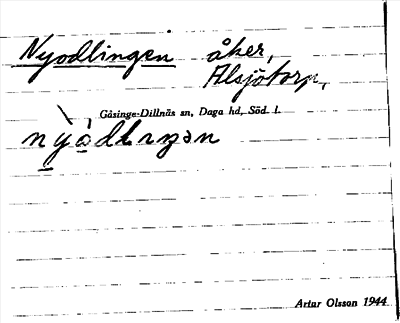 Nyodlingen åker,
Alsjötorp,
Gåsinge-Dillnäs sn, Daga hd, Söd. l.
Artur Olsson 1944